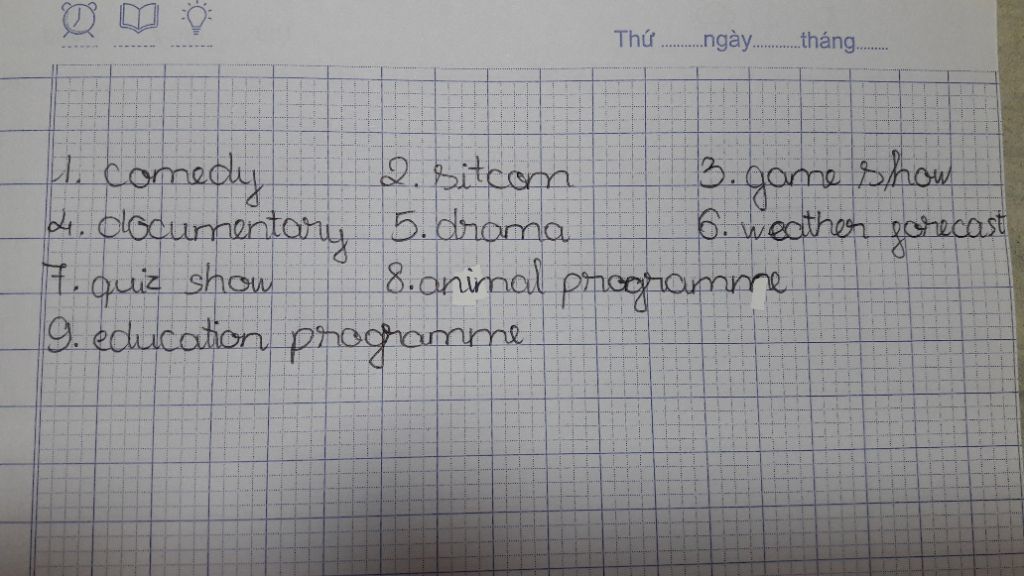 Thứ ..........ngày...........tháng.......
1. comedy 2. sitcom 3. game show
4. documentary 5. drama 6. weather forecast
7. quiz show 8. animal programme
9. education programme